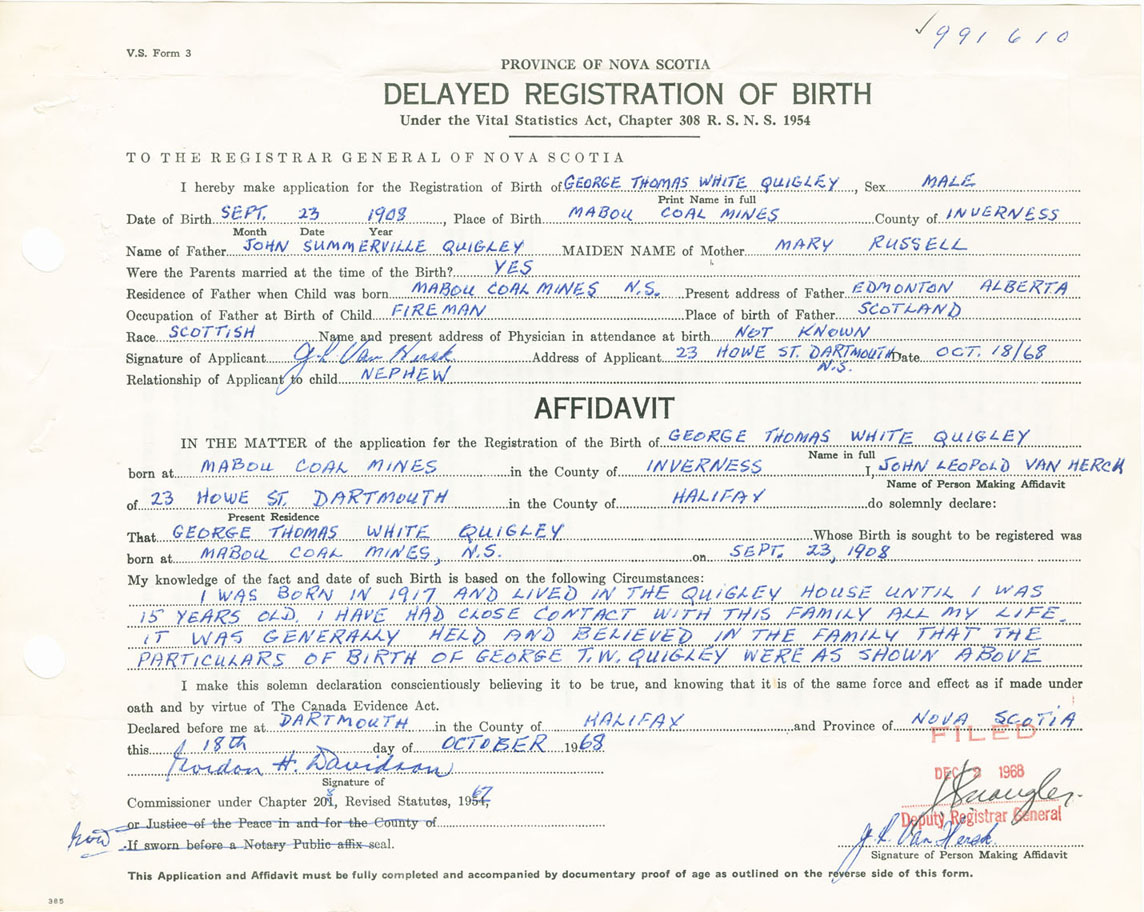 991610
V.S. Form 3
PROVINCE OF NOVA SCOTIA
DELAYED REGISTRATION OF BIRTH
Under the Vital Statistics Act, Chapter 308 R. S. N. S. 1954
TO THE REGISTRAR GENERAL OF NOVA SCOTIA
I hereby make application for the Registration of Birth of GEORGE THOMAS WHITE QUIGLEY, Sex MALE
Print Name in full
Date of Birth SEPT. 23 1908, Place of Birth MABOU COAL MINES County of INVERNESS
Month Date Year
Name of Father JOHN SUMMERVILLE QUIGLEY MAIDEN NAME of Mother MARY RUSSELL
Were the Parents married at the time of the Birth? YES
Residence of Father when Child was born MABOU COAL MINES N.S. Present address of Father EDMONTON ALBERTA
Occupation of Father at Birth of Child FIREMAN Place of birth of Father SCOTLAND
Race SCOTTISH Name and present address of Physician in attendance at birth NOT KNOWN
Signature of Applicant J. L. Van Herck Address of Applicant 23 HOWE ST. DARTMOUTH Date OCT. 18/68
N.S.
Relationship of Applicant to child NEPHEW
AFFIDAVIT
IN THE MATTER of the application for the Registration of the Birth of GEORGE THOMAS WHITE QUIGLEY
Name in full
born at MABOU COAL MINES in the County of INVERNESS I, JOHN LEOPOLD VAN HERCK
Name of Person Making Affidavit
of 23 HOWE ST. DARTMOUTH in the County of HALIFAX do solemnly declare:
Present Residence
That GEORGE THOMAS WHITE QUIGLEY Whose Birth is sought to be registered was
born at MABOU COAL MINES, N.S. on SEPT. 23, 1908
My knowledge of the fact and date of such Birth is based on the following Circumstances:
I WAS BORN IN 1917 AND LIVED IN THE QUIGLEY HOUSE UNTIL I WAS
15 YEARS OLD. I HAVE HAD CLOSE CONTACT WITH THIS FAMILY ALL MY LIFE.
IT WAS GENERALLY HELD AND BELIEVED IN THE FAMILY THAT THE
PARTICULARS OF BIRTH OF GEORGE T.W. QUIGLEY WERE AS SHOWN ABOVE
I make this solemn declaration conscientiously believing it to be true, and knowing that it is of the same force and effect as if made under
oath and by virtue of The Canada Evidence Act.
Declared before me at DARTMOUTH in the County of HALIFAX and Province of NOVA SCOTIA
this 18th day of OCTOBER 1968
FILED
Gordon H. Davidson
DEC 1968
Signature of
Commissioner under Chapter 208, Revised Statutes, 1967,
or Justice of the Peace in and for the County of
Deputy Registrar General
If sworn before a Notary Public affix seal.
J. L. Van Herck
Signature of Person Making Affidavit
This Application and Affidavit must be fully completed and accompanied by documentary proof of age as outlined on the reverse side of this form.
305